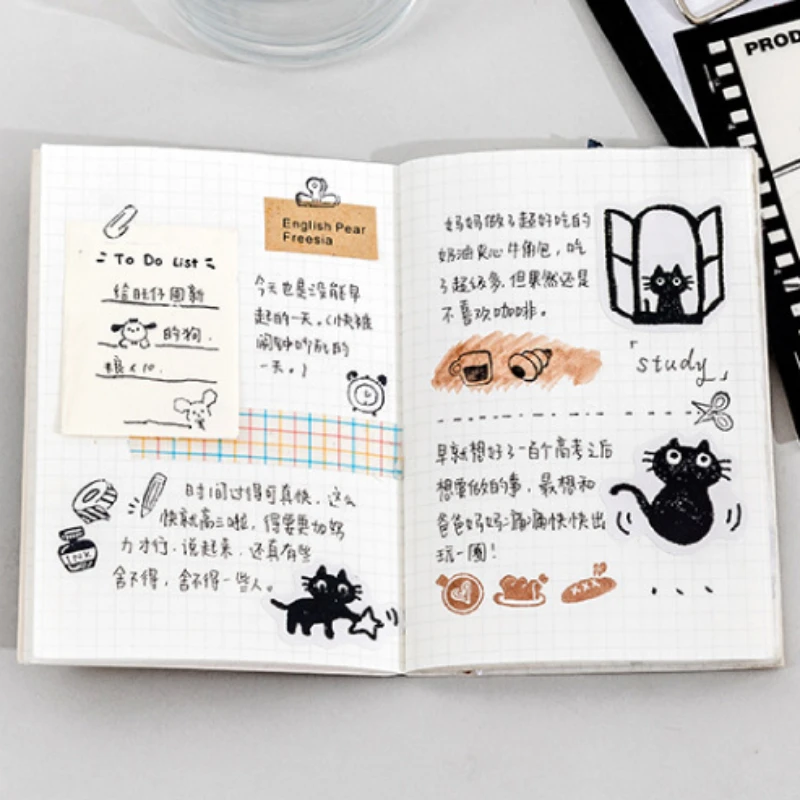 To Do List
给旺仔囤新
的狗
粮×10.
English Pear
Freesia
今天也是没能早
起的一天。(快被
闹钟吵死的
一天。)
时间过得可真快，这么
快就高三啦，得要更加努
力才行.说起来，还真有些
舍不得，舍不得一些人。
INK
妈妈做了超好吃的
奶油夹心牛角包，吃
了超级多.但果然还是
不喜欢咖啡。
「study」
早就想好了一百个高考之后
想要做的事，最想和
爸爸妈妈痛痛快快出
玩一圈！
xxx
...
PROD